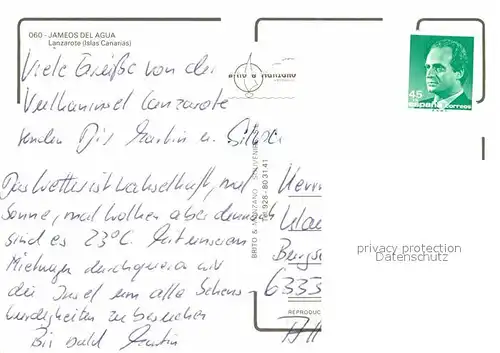 060 - JAMEOS DEL AGUA
Lanzarote (Islas Canarias)
Viele Grüße von der
Vulkaninsel Lanzarote
senden Dir Martin u. Silvia
Das Wetter ist wechselhaft, mal
Sonne, mal Wolken aber dennoch
sind es 23°C. Mit unserem
Mietwagen durchqueren wir
die Insel um alle Sehens-
würdigkeiten zu besuchen
Bis bald Martin
BRITO & MANZANO
BRITO & MANZANO - SOUVENIRS
Tel. 928 - 80 31 41
45
España correos
Herrn
6333
REPRODUC
privacy protection
Datenschutz